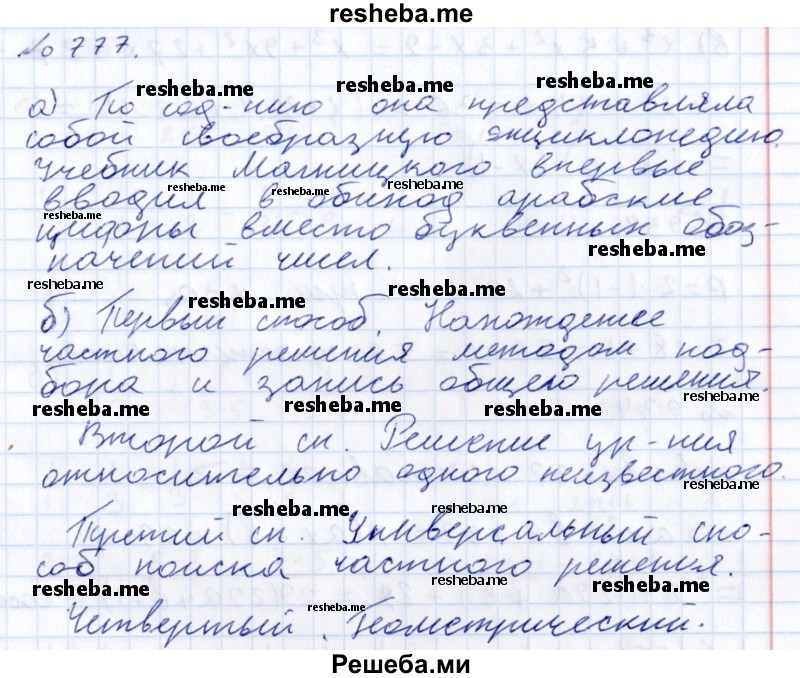 resheba.me
№ 777.
resheba.me resheba.me resheba.me
а) По сод-нию она представляла
собой своебразную энциклопедию.
resheba.me resheba.me resheba.me
Учебник Магницкого впервые
resheba.me resheba.me resheba.me
вводил в обиход арабские
resheba.me
цифры вместо буквенных обоз-
resheba.me
начений чисел.
resheba.me resheba.me resheba.me
б) Первый способ. Нахождение
частного решения методом под-
бора и запись общего решения.
resheba.me resheba.me resheba.me
Второй сп. Решение ур-ния
относительно одного неизвестного.
resheba.me
resheba.me resheba.me
Третий сп. Универсальный спо-
соб поиска частного решения.
resheba.me resheba.me resheba.me
resheba.me
Четвертый. Геометрический.
Решеба.ми